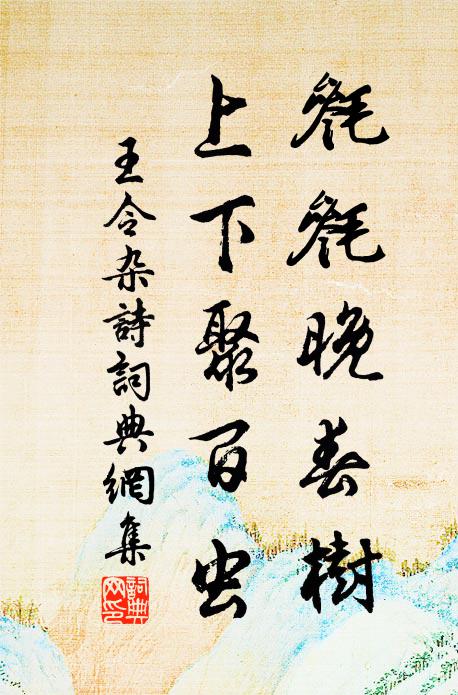 毿毿晚春樹
上下聚百虫
王令杂詩詞典網集
詞典
网印